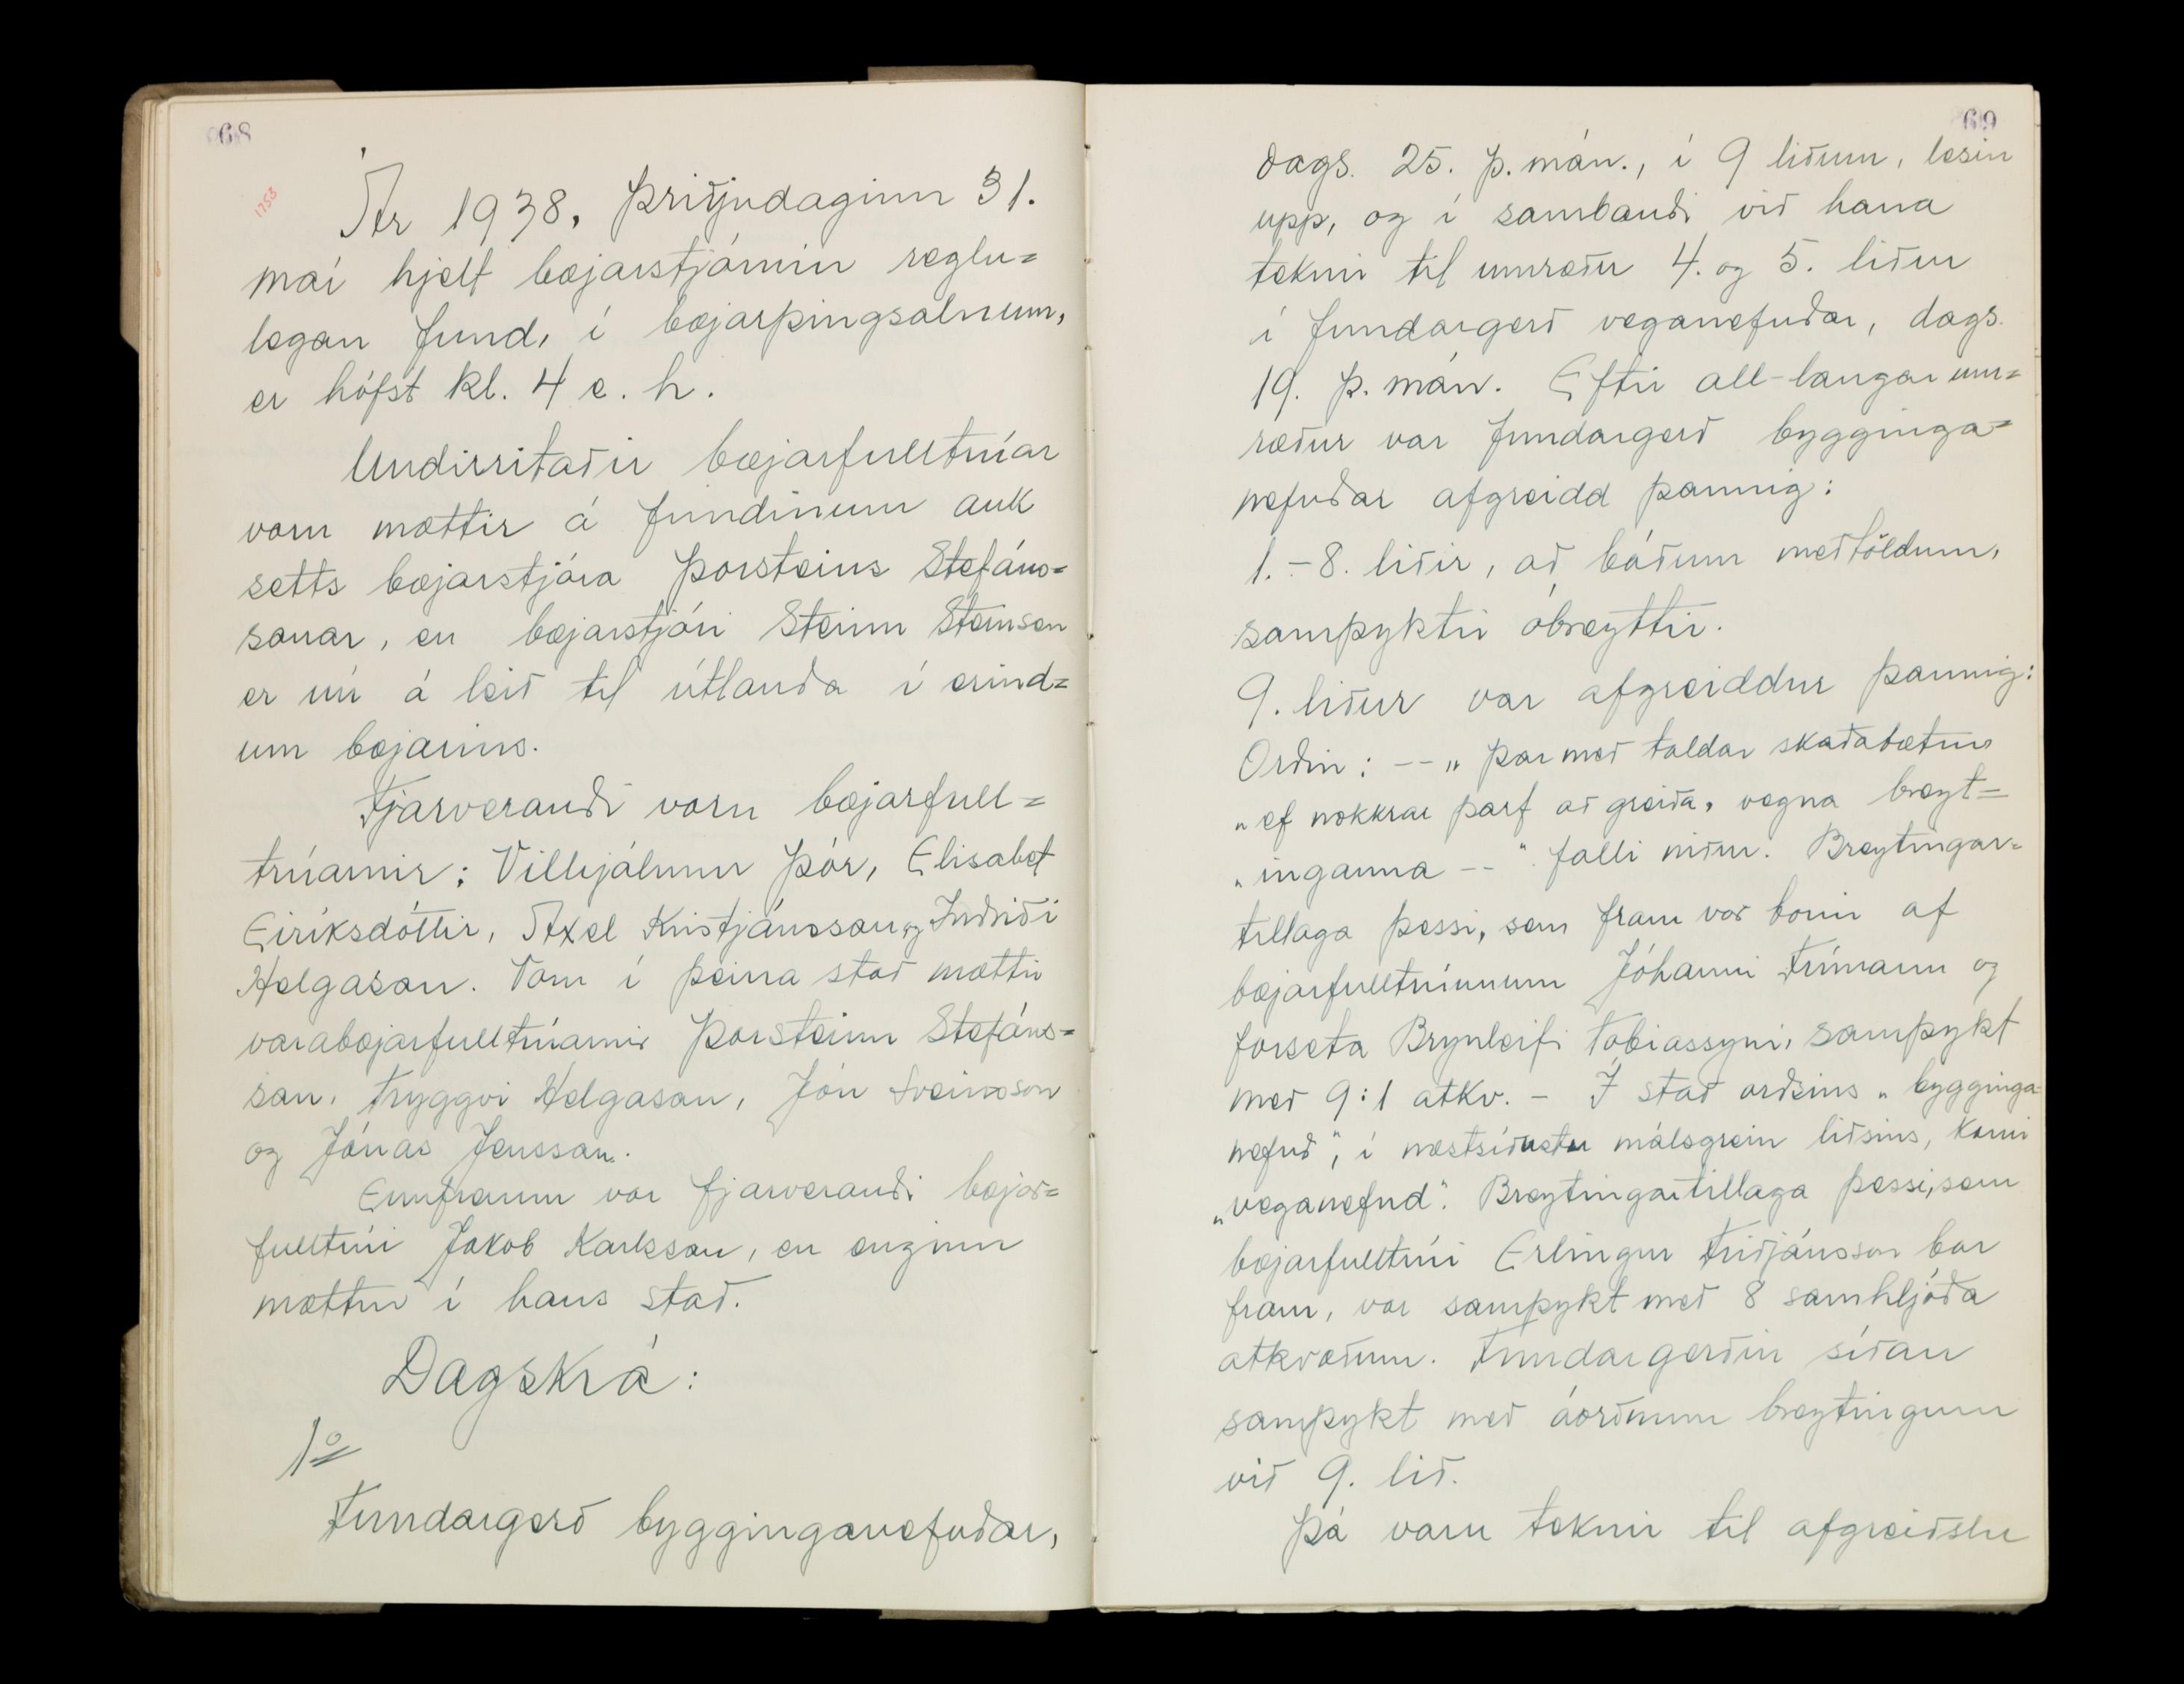 68
1753
Ár 1938, þriðjudaginn 31.
maí hjelt bæjarstjórnin reglu=
legan fund, í bæjarþingsalnum,
er hófst kl. 4 e. h.
Undirritaðir bæjarfulltrúar
voru mættir á fundinum auk
setts bæjarstjóra Þorsteins Stefáns=
sonar, en bæjarstjóri Steinn Steinsen
er nú á leið til útlanda í erind=
um bæjarins.
Fjarverandi voru bæjarfull=
trúarnir: Vilhjálmur Þór, Elisabet
Eiríksdóttir, Axel Kristjánsson og Indriði
Helgason. Voru í þeirra stað mættir
varabæjarfulltrúarnir Þorsteinn Stefáns=
son, Tryggvi Helgason, Jón Sveinsson
og Jónas Jensson.
Ennfremur var fjarverandi bæjar=
fulltrúi Jakob Karlsson, en enginn
mættur í hans stað.
Dagskrá:
1o
Fundargerð bygginganefndar,
69
dags. 25. þ. mán., í 9 liðum, lesin
upp, og í sambandi við hana
teknir til umræðu 4. og 5. liður
í fundargerð veganefndar, dags.
19. þ. mán. Eftir all-langar um=
ræður var fundargerð bygginga=
nefndar afgreidd þannig:
1.-8. liðir, að báðum meðtöldum,
samþyktir óbreyttir.
9. liður var afgreiddur þannig:
Orðin: -- „þar með taldar skaðabætur
„ef nokkrar þarf að greiða, vegna breyt=
„inganna --“ falli niður. Breytingar=
tillaga þessi, sem fram var borin af
bæjarfulltrúunum Jóhanni Frímann og
forseta Brynleifi Tobiassyni, samþykt
með 9:1 atkv. - Í stað orðsins „bygginga=
nefnd“, í næstsíðustu málsgrein liðsins, komi
„veganefnd“. Breytingartillaga þessi, sem
bæjarfulltrúi Erlingur Friðjónsson bar
fram, var samþykt með 8 samhljóða
atkvæðum. Fundargerðin síðan
samþykt með áorðnum breytingum
við 9. lið.
Þá voru teknir til afgreiðslu